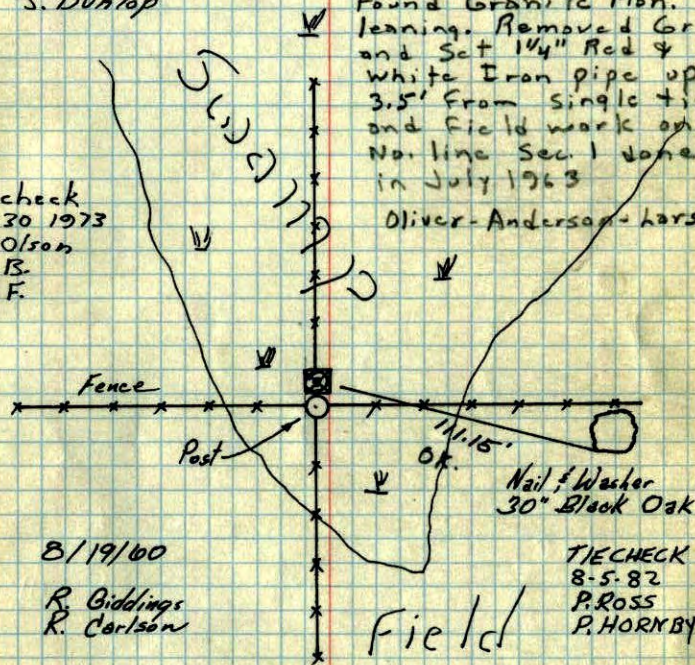 J. Dunlop
Found Granite Mon.
leaning. Removed Gr
and Set 1¼" Red &
White Iron pipe up
3.5' From single ti
and Field work on
No. line Sec. 1 done
in July 1963
Oliver-Anderson-Lars
check
30 1973
Olson
B.
F.
Fence
Post
111.15'
OK.
Nail & Washer
30" Black Oak
8/19/60
R. Giddings
R. Carlson
TIECHECK
8-5-82
P. ROSS
P. HORNBY
Field